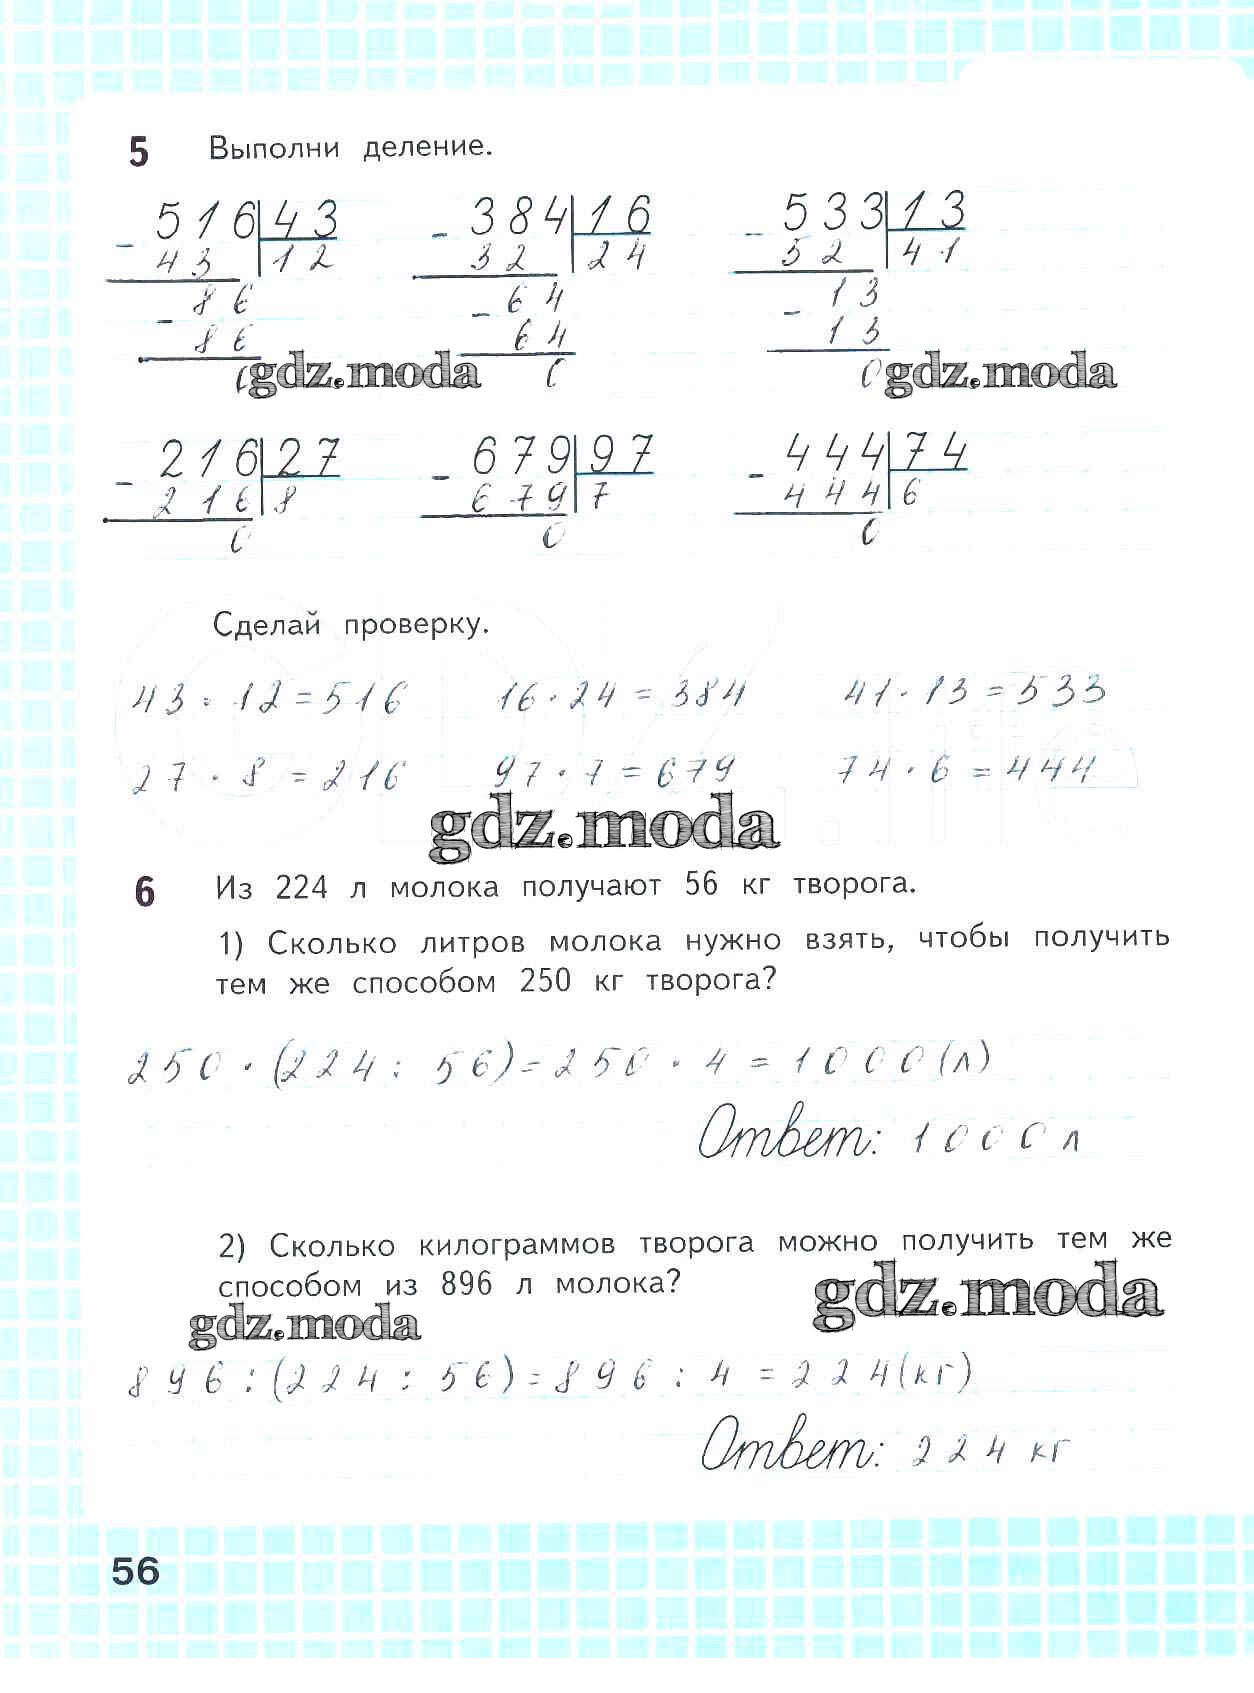 5 Выполни деление.
516 43 384 16 533 13
- 43 12 - 32 24 - 52 41
- 86 - 64 - 13
86 64 13
0 gdz.moda 0 0 gdz.moda
216 27 679 97 444 74
- 216 8 - 679 7 - 444 6
0 0 0
Сделай проверку.
43 · 12 = 516 16 · 24 = 384 41 · 13 = 533
27 · 8 = 216 97 · 7 = 679 74 · 6 = 444
gdz.moda
6 Из 224 л молока получают 56 кг творога.
1) Сколько литров молока нужно взять, чтобы получить
тем же способом 250 кг творога?
250 · (224 : 56) = 250 · 4 = 1000 (л)
Ответ: 1000 л
2) Сколько килограммов творога можно получить тем же
способом из 896 л молока?
gdz.moda gdz.moda
896 : (224 : 56) = 896 : 4 = 224 (кг)
Ответ: 224 кг
56